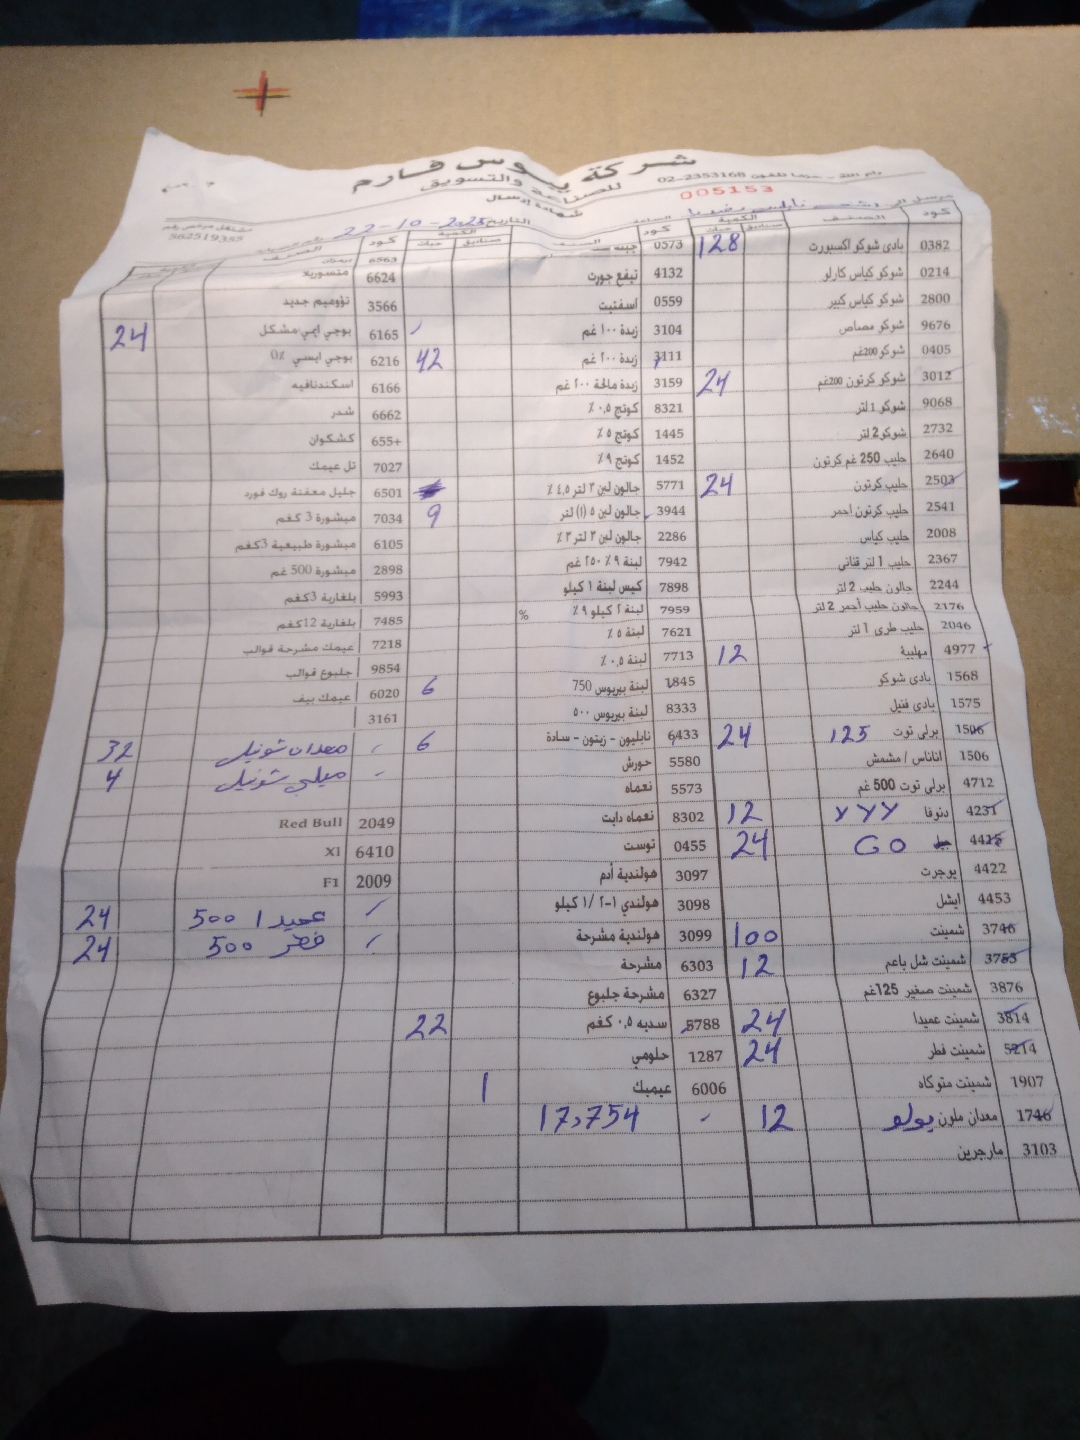 شركة بيوس فارم
للصناعة والتسويق
رام الله - تلفون 02-2353168
005153
شهادة إرسال
مشتغل مرخص رقم
562519355
التاريخ 22-10-2025
كود الصنف الكمية صناديق حبات كود الصنف الكمية صناديق حبات كود الصنف
0382 بادي شوكو اكسبورت 128 0573 جبنة 6563
0214 شوكو كياس كارلو 4132 نيفع جورت 6624
2800 شوكو كياس كبير 0559 اسفتيت 3566 نؤوميم جديد
9676 شوكو مصاص 3104 زبدة ١٠٠ غم 6165 يوجي ايي مشكل 24
0405 شوكو 200غم 3111 زبدة ٢٠٠ غم 42 6216 يوجي ايسي ٪0
3012 شوكو كرتون 200غم 24 3159 زبدة مالحة ٢٠٠ غم 6166 اسكندنافيه
9068 شوكو 1 لتر 8321 كوتج ٠,٥ ٪ 6662 شدر
2732 شوكو 2 لتر 1445 كوتج ٥ ٪ 655+ كشكوان
2640 حليب 250 غم كرتون 1452 كوتج ٩ ٪ 7027 تل عيمك
2503 حليب كرتون 24 5771 جالون لبن ٣ لتر ٤,٥ ٪ 6501 جليل معفنة روك فورد
2541 حليب كرتون احمر 3944 جالون لبن ٥ (١) لتر 9 7034 مبشورة 3 كغم
2008 حليب كياس 2286 جالون لبن ٣ لتر ٣ ٪ 6105 مبشورة طبيعية 3كغم
2367 حليب 1 لتر قناني 7942 لبنة ٩ ٪ ٢٥٠ غم 2898 مبشورة 500 غم
2244 جالون حليب 2 لتر 7898 كيس لبنة ١ كيلو 5993 بلغارية 3كغم
2176 جالون حليب أحمر 2 لتر 7959 لبنة ٢ كيلو ٩ ٪ % 7485 بلغارية 12كغم
2046 حليب طري 1 لتر 7621 لبنة ٥ ٪ 7218 عيمك مشرحة قوالب
4977 مهلبية 12 7713 لبنة ٠,٥ ٪ 9854 جلبوع قوالب
1568 بادي شوكو 1845 لبنة بيريوس 750 6 6020 عيمك بيف
1575 بادي فنيل 8333 لبنة بيريوس ٥٠٠ 3161
1506 برلي توت 125 24 6433 نابليون - زيتون - سادة 6 معدان شونيل 32
1506 اناناس / مشمش 5580 حورش ميلي شونيل 4
4712 برلي توت 500 غم 5573 نعماه
4231 دنوفا YYY 12 8302 نعماه دايت 2049 Red Bull
4415 GO 24 0455 توست 6410 Xl
4422 يوجرت 3097 هولندية أدم 2009 F1
4453 ايشل 3098 هولندي ١-٢ /١ كيلو عميدا 500 24
3746 شمينت 100 3099 هولندية مشرحة فطر 500 24
3753 شمينت شل باعم 12 6303 مشرحة
3876 شمينت صغير 125غم 6327 مشرحة جلبوع
3814 شمينت عميدا 24 5788 سدبه ٠,٥ كغم 22
5214 شمينت فطر 24 1287 حلومي
1907 شمينت متوكاه 6006 عيمبك 1
1746 معدان ملون يولو 12 17,754
3103 مارجرين